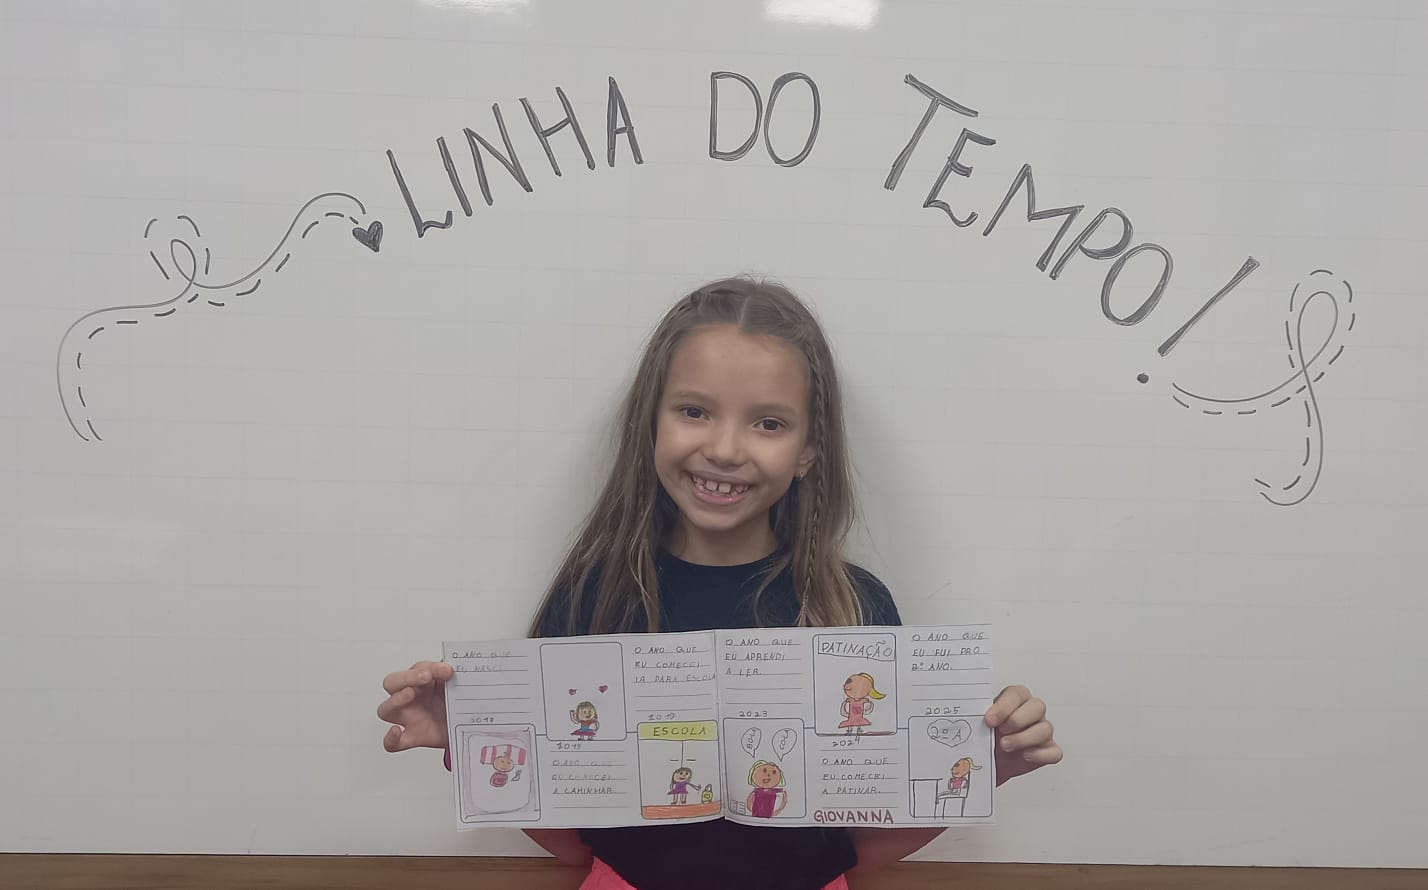 LINHA DO TEMPO!
O ANO QUE
EU NASCI
2017
O ANO QUE
EU COMECEI
A CAMINHAR.
O ANO QUE
EU COMECEI
IR PARA ESCOLA
ESCOLA
O ANO QUE
EU APRENDI
A LER.
2023
BOLA
COLA
PATINAÇÃO
2024
O ANO QUE
EU COMECEI
A PATINAR.
O ANO QUE
EU FUI PRO
2º ANO.
2025
2º A
GIOVANNA